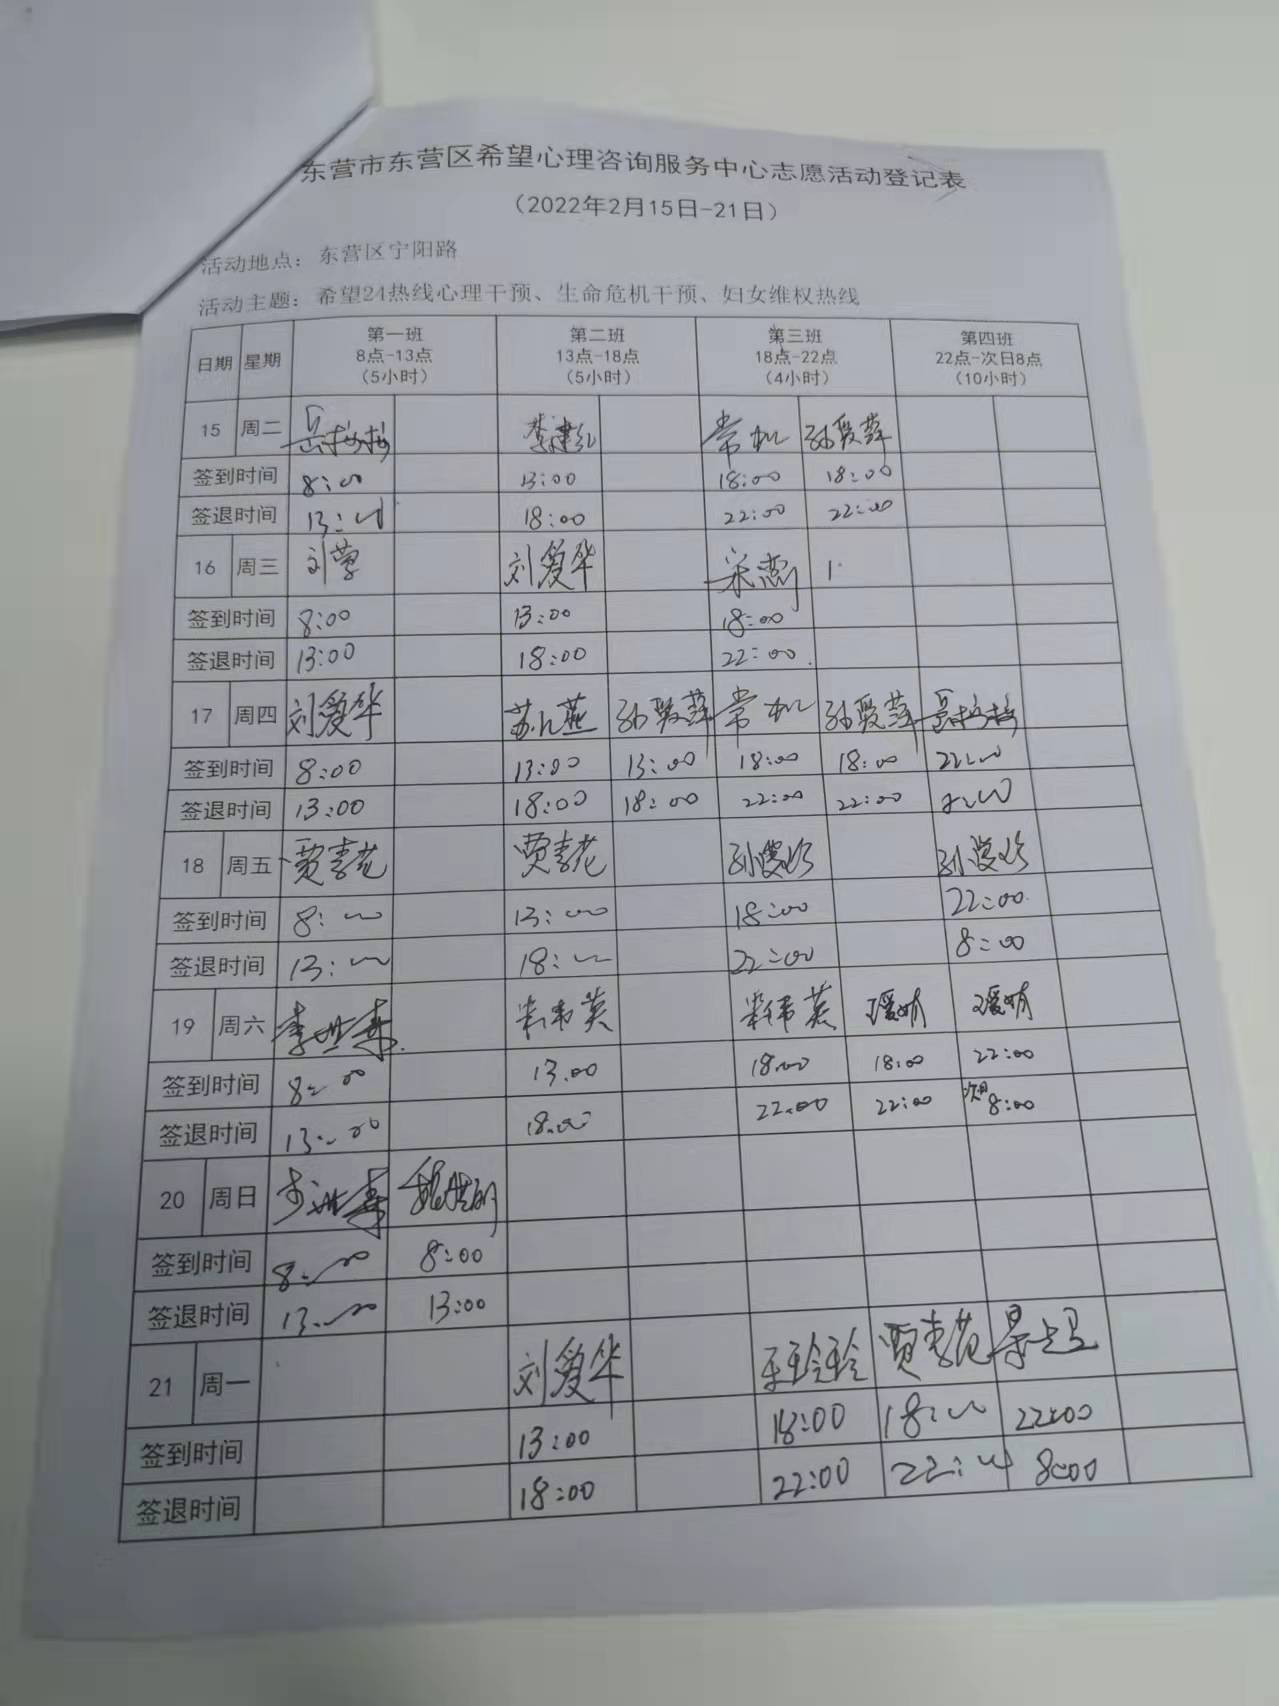 东营市东营区希望心理咨询服务中心志愿活动登记表
（2022年2月15日-21日）
活动地点：东营区宁阳路
活动主题：希望24热线心理干预、生命危机干预、妇女维权热线
日期 星期 第一班 8点-13点 （5小时） 第二班 13点-18点 （5小时） 第三班 18点-22点 （4小时） 第四班 22点-次日8点 （10小时）
15 周二 李建红
签到时间 8:00 13:00 18:00 18:00
签退时间 13:00 18:00 22:00 22:00
16 周三 刘莹 刘爱华
签到时间 8:00 13:00 18:00
签退时间 13:00 18:00 22:00
17 周四 刘爱华
签到时间 8:00 13:00 13:00 18:00 18:00 22:00
签退时间 13:00 18:00 18:00 22:00 22:00 8:00
18 周五 贾春花 贾春花
签到时间 8:00 13:00 18:00 22:00
签退时间 13:00 18:00 22:00 8:00
19 周六
签到时间 8:00 13.00 18.00 18:00 22:00
签退时间 13:00 18.00 22.00 22:00 次日8:00
20 周日
签到时间 8:00 8:00
签退时间 13:00 13:00
21 周一 刘爱华 王玲玲 贾春花
签到时间 13:00 18:00 18:00 22:00
签退时间 18:00 22:00 22:00 8:00